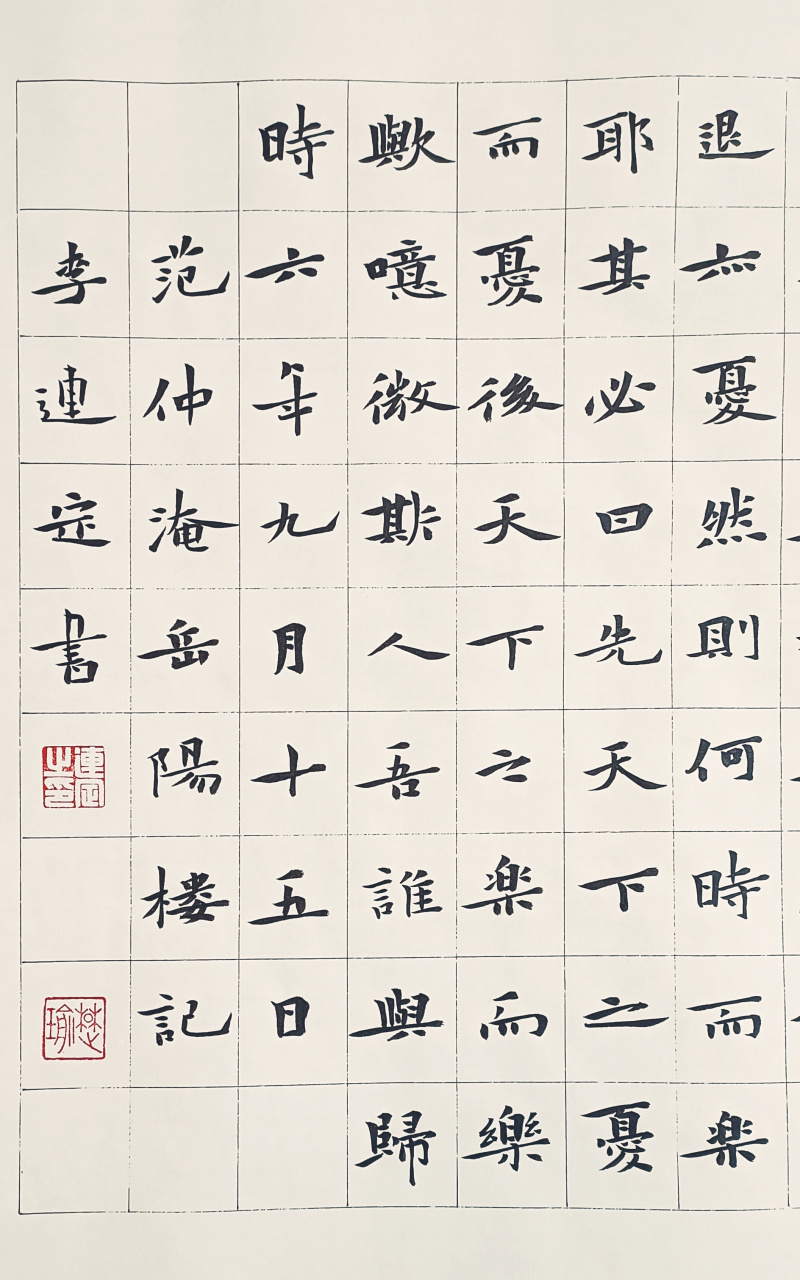 退亦憂然則何時而楽
耶其必曰先天下之憂
而憂後天下之楽而樂
歟噫微斯人吾誰與歸
時六年九月十五日
范仲淹岳陽楼記
李連定書
連定之印